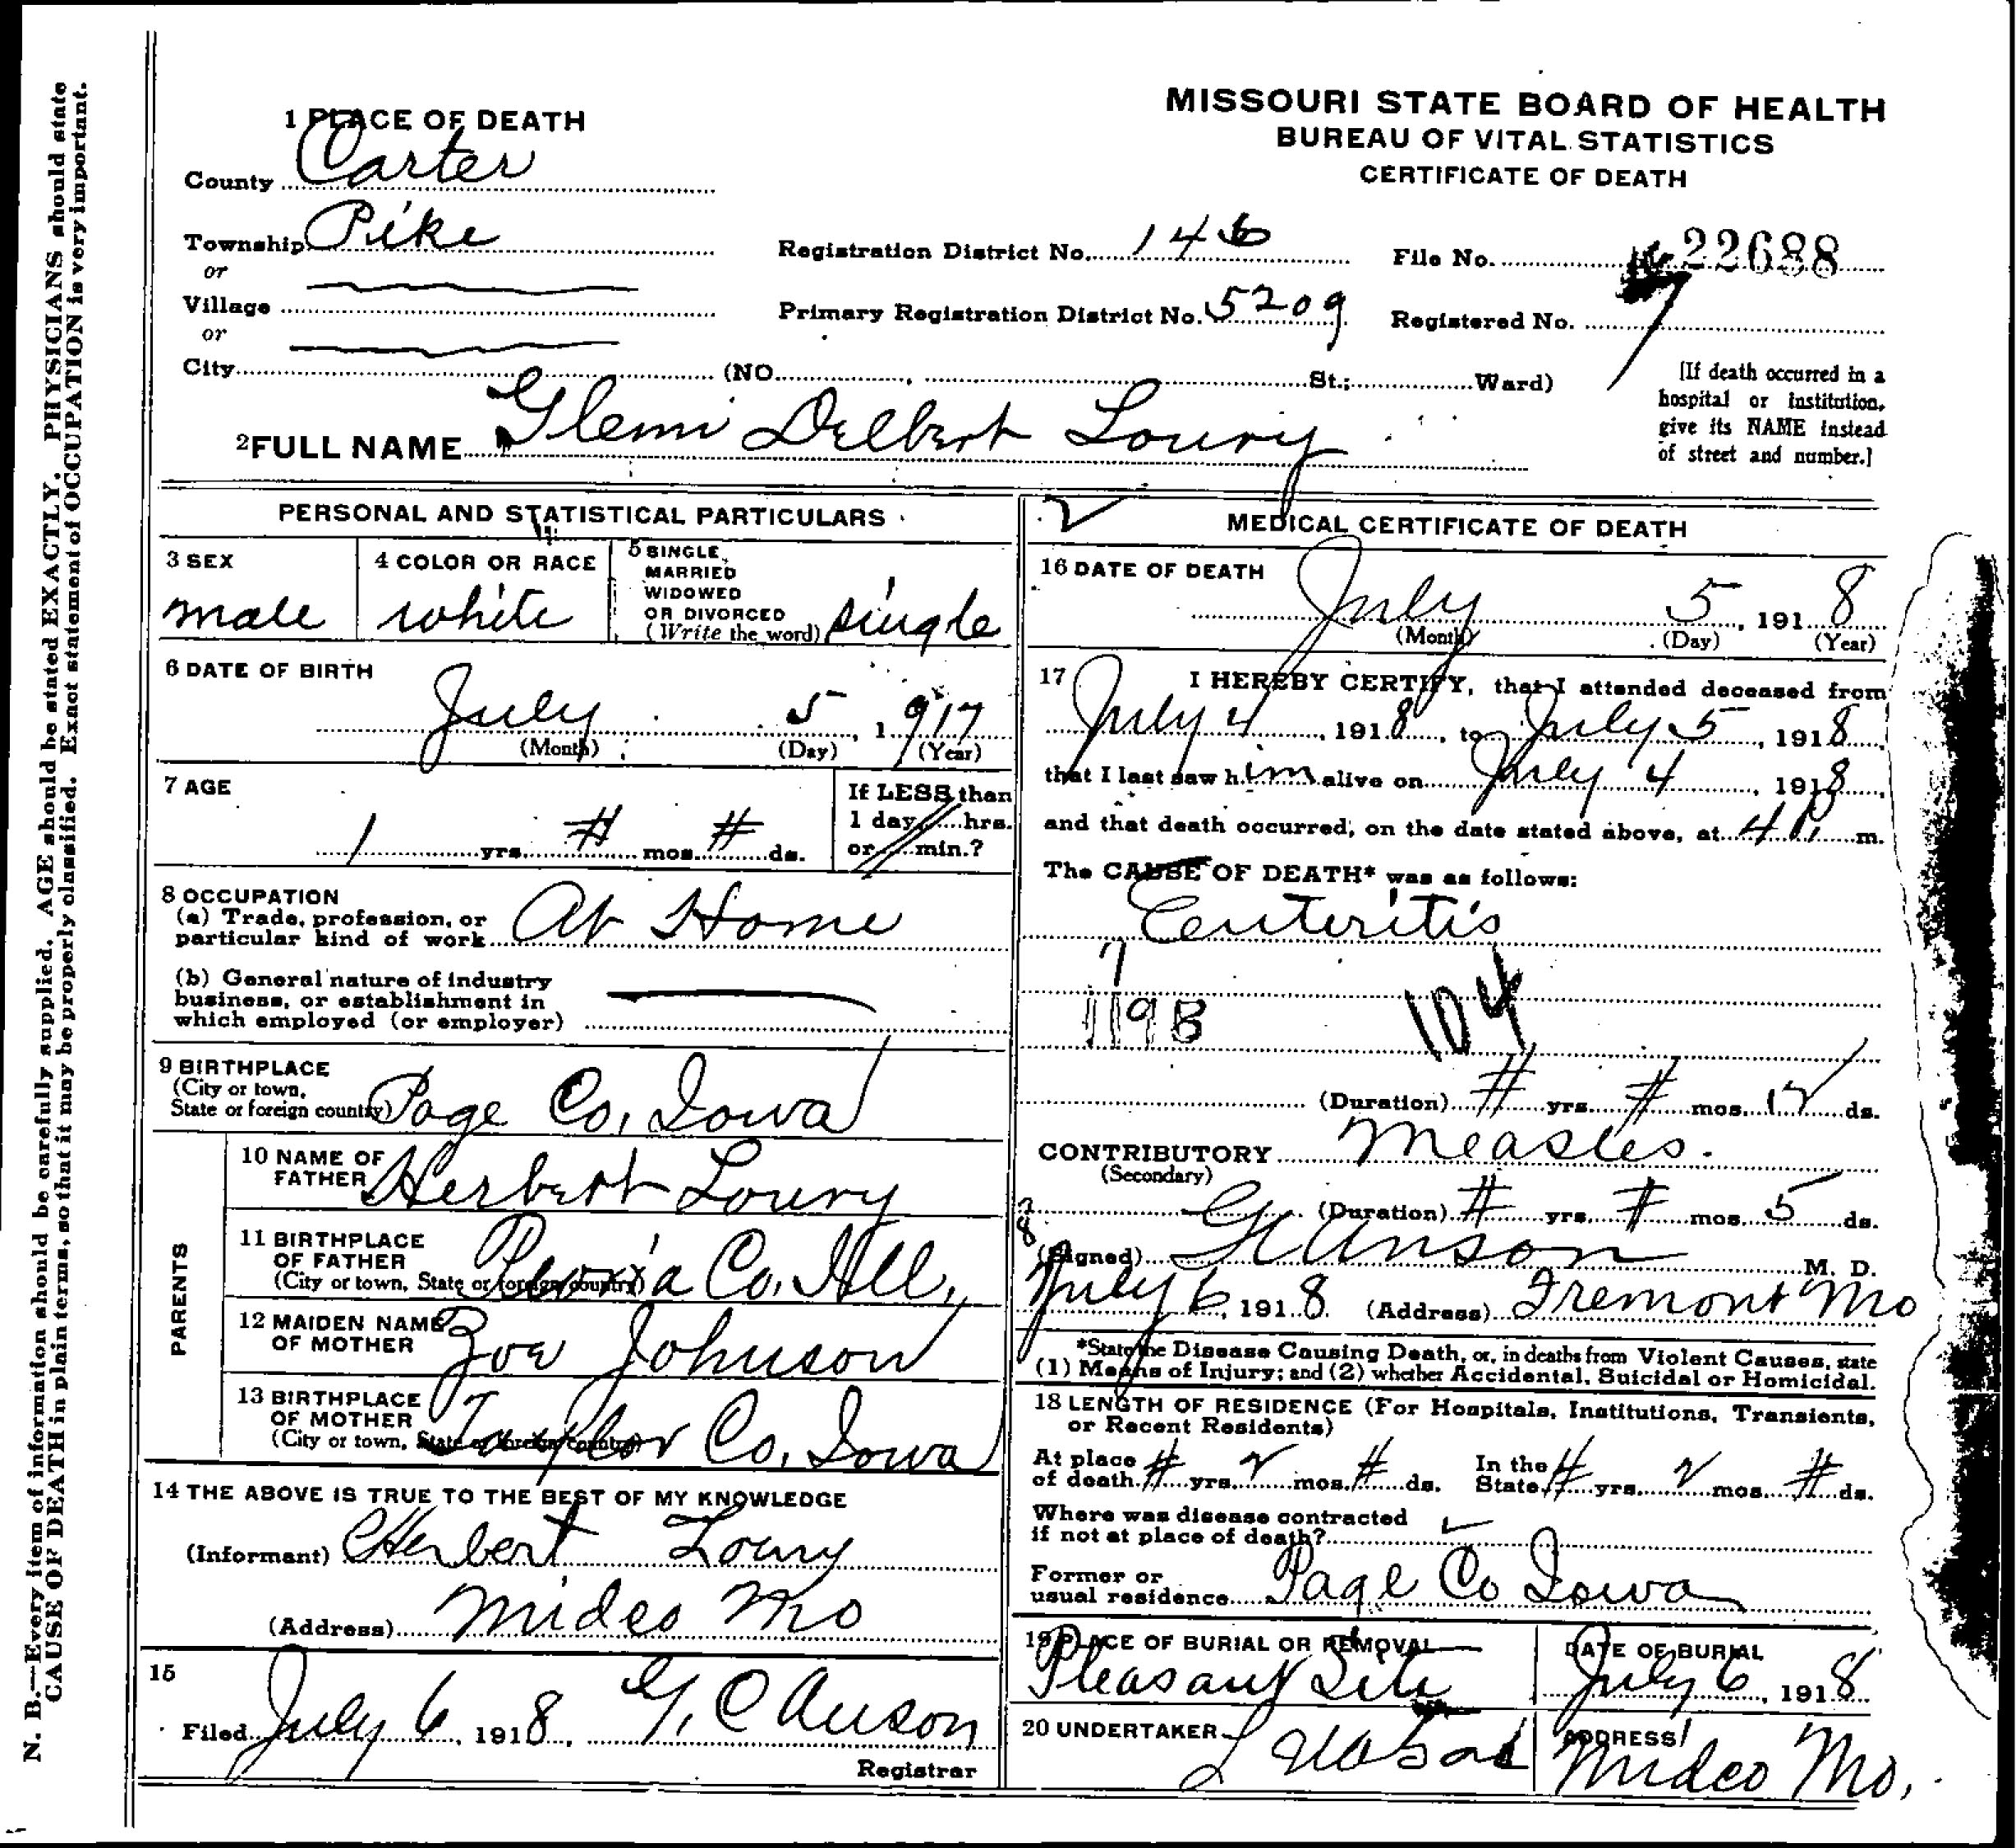 MISSOURI STATE BOARD OF HEALTH
BUREAU OF VITAL STATISTICS
CERTIFICATE OF DEATH
1 PLACE OF DEATH
County Carter
Township Pike
or
Village
or
City (NO. , St.; Ward)
Registration District No. 146
File No. 22688
Primary Registration District No. 5209
Registered No. 7
[If death occurred in a
hospital or institution,
give its NAME instead
of street and number.]
2 FULL NAME Glenn Delbert Loury
PERSONAL AND STATISTICAL PARTICULARS
3 SEX
male
4 COLOR OR RACE
white
5 SINGLE,
MARRIED
WIDOWED
OR DIVORCED
(Write the word) single
6 DATE OF BIRTH
July 5, 1917
(Month) (Day) (Year)
7 AGE
1 yrs. # mos. # ds.
If LESS than
1 day, hrs.
or min.?
8 OCCUPATION
(a) Trade, profession, or
particular kind of work At Home
(b) General nature of industry
business, or establishment in
which employed (or employer)
9 BIRTHPLACE
(City or town,
State or foreign country) Page Co, Iowa
PARENTS
10 NAME OF
FATHER Herbert Loury
11 BIRTHPLACE
OF FATHER
(City or town, State or foreign country) Peoria Co, Ill,
12 MAIDEN NAME
OF MOTHER Zoe Johnson
13 BIRTHPLACE
OF MOTHER
(City or town, State or foreign country) Taylor Co, Iowa
14 THE ABOVE IS TRUE TO THE BEST OF MY KNOWLEDGE
(Informant) Herbert Loury
(Address) Midco Mo
15
Filed July 6, 1918, G. C Anson
Registrar
MEDICAL CERTIFICATE OF DEATH
16 DATE OF DEATH
July 5, 1918
(Month) (Day) (Year)
17 I HEREBY CERTIFY, that I attended deceased from
July 4, 1918, to July 5, 1918,
that I last saw him alive on July 4, 1918,
and that death occurred, on the date stated above, at 4 P. m.
The CAUSE OF DEATH* was as follows:
Enteritis
119B 104
(Duration) # yrs. # mos. 12 ds.
CONTRIBUTORY Measles.
(Secondary)
(Duration) # yrs. # mos. 5 ds.
(Signed) G Anson M. D.
July 6, 1918. (Address) Fremont Mo
*State the Disease Causing Death, or, in deaths from Violent Causes, state
(1) Means of Injury; and (2) whether Accidental, Suicidal or Homicidal.
18 LENGTH OF RESIDENCE (For Hospitals, Institutions, Transients,
or Recent Residents)
At place
of death # yrs. 2 mos. # ds.
In the
State # yrs. 2 mos. # ds.
Where was disease contracted
if not at place of death?
Former or
usual residence Page Co Iowa
19 PLACE OF BURIAL OR REMOVAL
Pleasant Site
DATE OF BURIAL
July 6, 1918.
20 UNDERTAKER
ADDRESS
Midco Mo,
N. B.—Every item of information should be carefully supplied. AGE should be stated EXACTLY. PHYSICIANS should state
CAUSE OF DEATH in plain terms, so that it may be properly classified. Exact statement of OCCUPATION is very important.